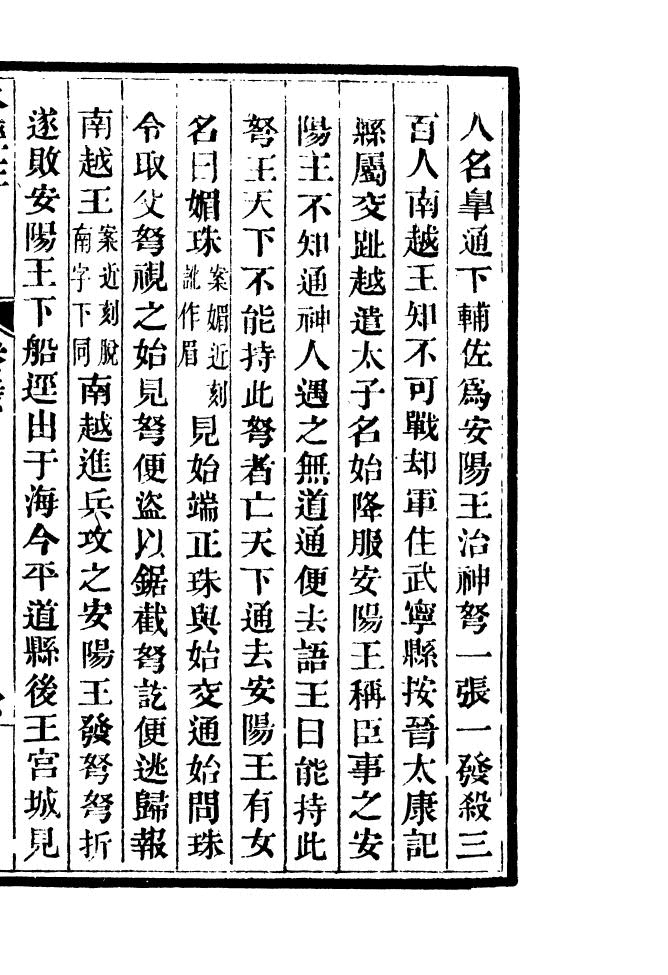 人名臯通下輔佐為安陽王治神弩一張一發殺三
百人南越王知不可戰却軍住武寧縣按晉太康記
縣屬交趾越遣太子名始降服安陽王稱臣事之安
陽王不知通神人遇之無道通便去語王曰能持此
弩王天下不能持此弩者亡天下通去安陽王有女
名曰媚珠案媚近刻訛作眉見始端正珠與始交通始問珠
令取父弩視之始見弩便盜以鋸截弩訖便逃歸報
南越王案近刻脫南字下同南越進兵攻之安陽王發弩弩折
遂敗安陽王下船逕出于海今平道縣後王宮城見